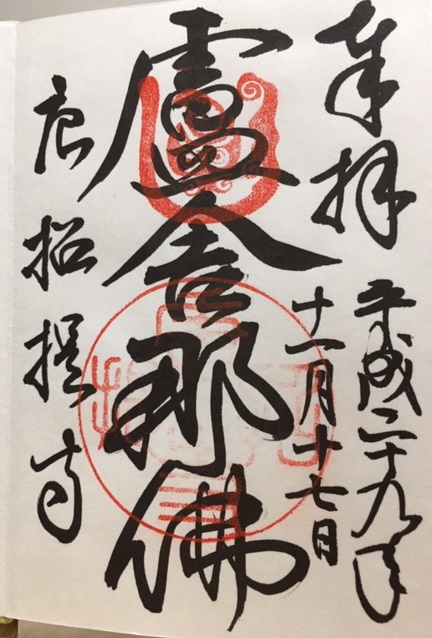 奉拝
平成二十九年
十一月十七日
盧舎那佛
唐招提寺